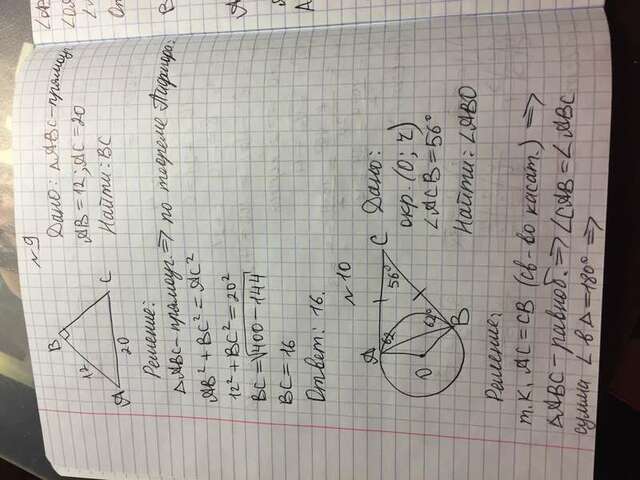 №9
B
12
A
20
C
Дано: △ABC-прямоуг.
AB=12; AC=20
Найти: BC
Решение:
△ABC-прямоуг. ⟹ по теореме Пифагора:
AB²+BC²=AC²
12²+BC²=20²
BC=√400-144
BC=16
Ответ: 16.
№10
A
62
56°
C
O
62°
B
Дано:
окр. (O; r)
∠ACB=56°
Найти: ∠ABO
Решение:
т.к. AC=CB (св-во касат.) ⟹
△ABC-равноб. ⟹ ∠CAB=∠ABC
сумма ∠ в △=180° ⟹